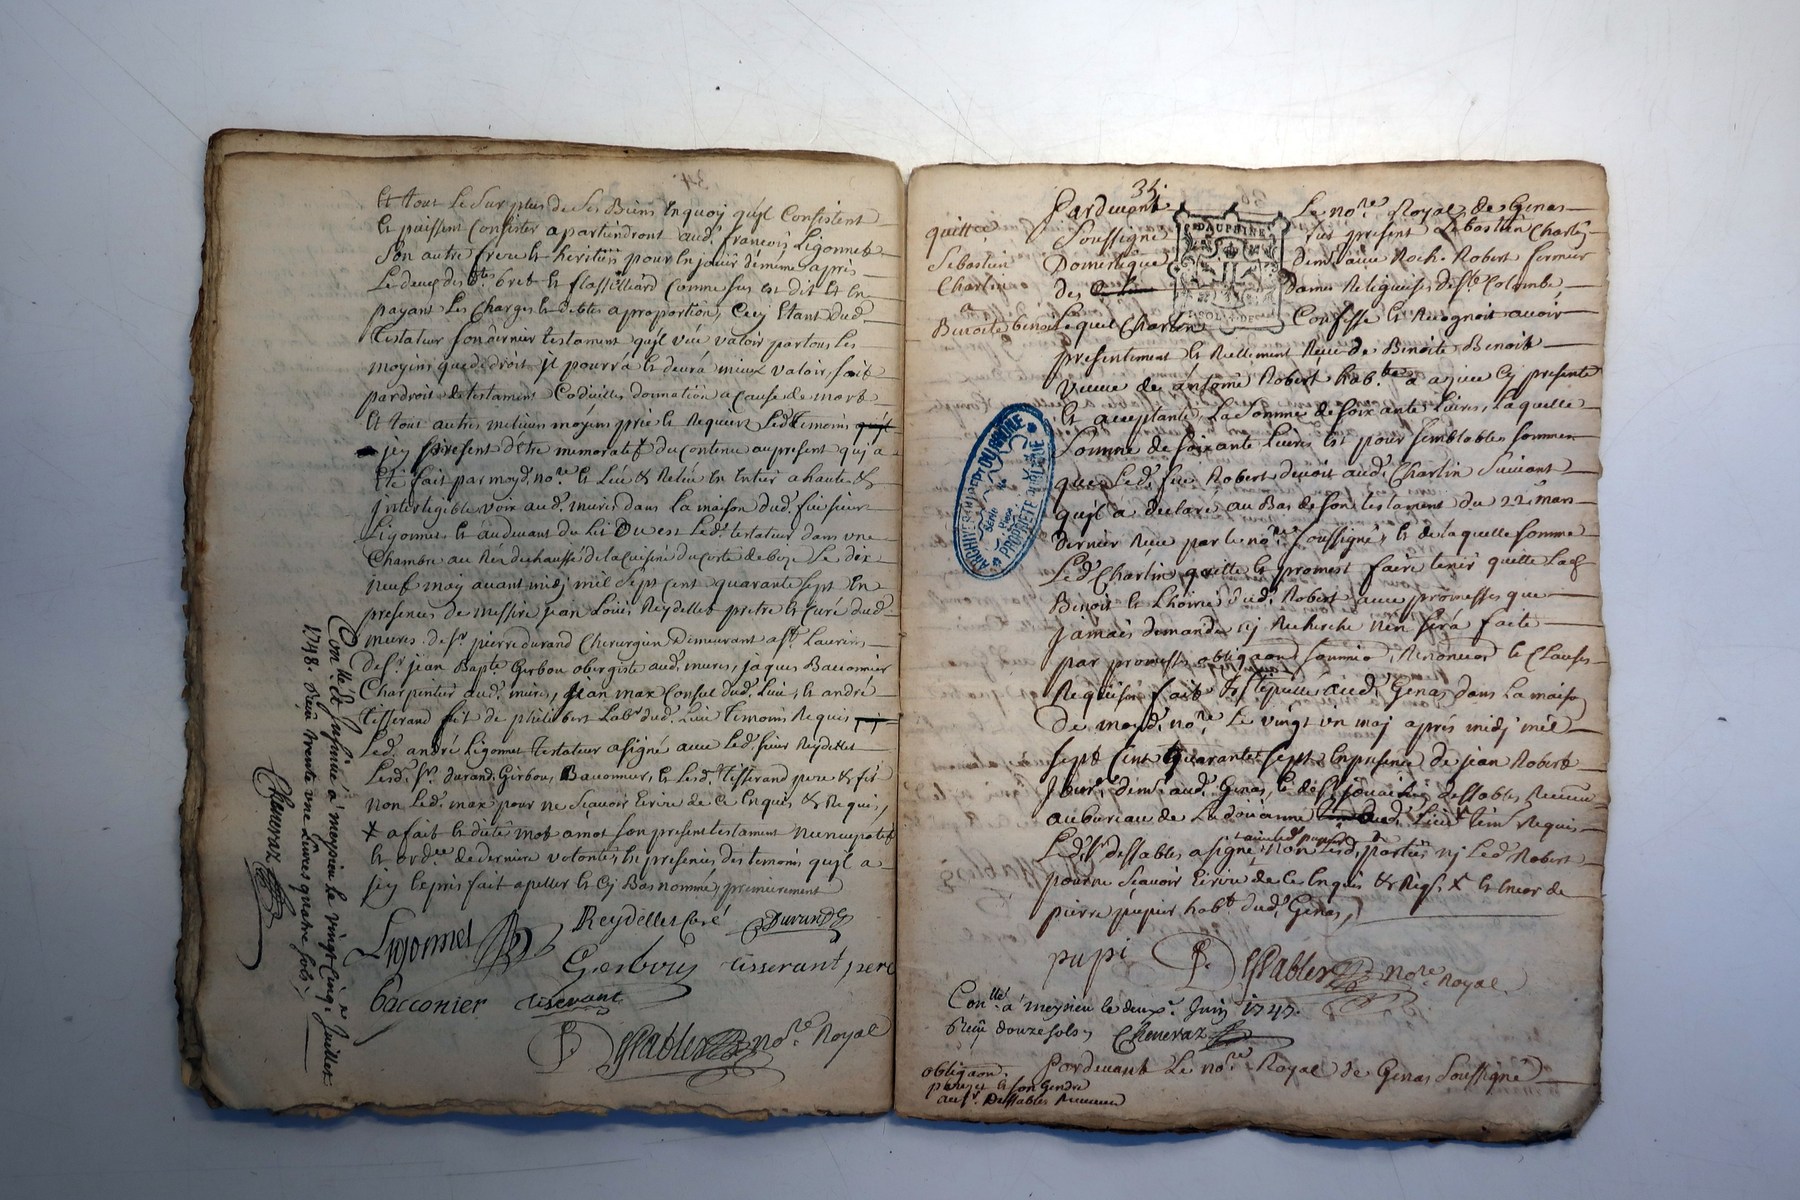 Et tout Le Surplus de Ses Biens En quoy qu'jl Consistent
Et puissent Consister apartiendront aud. françois Ligonnet
Son autre frere Et heritier pour En jouir de meme apres
payant Les Charges Et debtes a proportion, Cecy Etant Dud.
Testateur Son dernier testament qu'jl veut valoir par tous Les
moyens que de droit jl pourrá Et devrá mieux valoir, soit
par droit de testament Codicilles donnation a Cause de mort
Et tout autres meilleurs moyens prie Et Requiert Led. temoins
jcy present d'Etre memoratif du Contenu au present qu'j a
Eté fait par moyd. nore. Et Leu & Releu En Entier a haute &
jntelligible voix aud. mures dans La maison dud. feu sieur
Ligonnet Et au devant du Lit Ou est Led. testateur dans une
Chambre au Réz de chaussé de La Cuisine du Coté de bize Le dix
neuf may avant midj mil Sept Cent quarante Sept En
presences de messire jean Louis Reydellet pretre Et Curé dud.
mures. de sr. pierre durand Chirurgien Demeurant a st. Laurins
de sr. jean Bapte. Gerbou obergiste aud. mures, jaques Bacconnier
Charpentier aud. mures, jean max Consul dud. Lieu, Et andré
tisserand fils de philibert Labr. dud. Lieu temoins Requis
Led. andré Ligonnet testateur a signé avec Led. sieur Reydellet
Lesd. sr. durand, Gerbou, Bacconnier, Et Lesd. tisserand pere & fils
non Led. max pour ne Sçavoir Ecrire de Ce Enquis & Requis,
x a fait Et dicté mot a mot Son present testament nuncupatif
Et ordre. de derniere volonté En presences des temoins qu'jl a
jcy Expres fait apeller Et Cy Bas nommé, premierement
Ligonnet
Reydellet Curé
Durand
Gerbou
tisserant pere
bacconier
tiserant
Dessables nore. Royal
Conllé. Et Insinué a meysieu le vingt Cinqe. Juillet
1748. Reçu trente une Livres quatre sols.
Cheneraz
35.
quittce
Sebastien
Charlin
a
Benoite benoit
Pardevant Le nore. Royal de Genas
Soussigné fut present Sebastien Charlin
Domestique demt. avec Roch Robert fermier
des Dames Religieuses de ste. Colombe
Lequel Charlin Confesse Et Reconoit avoir
presentement Et Reellement Reçu de Benoite Benoit
veuve de antoine Robert hab.te a azieu Cy presente
Et acceptante La Somme de soixante Livres, Laquelle
Somme de soixante Livres Est pour Semblables sommes
que Led. feu Robert devoit aud. Charlin Suivant
qu'jl a declaré au Bas de son testament du 22e. mars
dernier Reçu par Le nore. soussigné, Et de laquelle somme
Led. Charlin quitte Et promest faire tenir quitte Lad.
Benoit Et L'hoirie dud. Robert avec promesses que
jamais demande nj Recherche n'En serà faite
par promesses obligaon. soumis. Renonciaon. Et Clauses
Requises fait Et stipulé aud. Genas dans La maison
De moyd. nore. Le vingt un may aprés midj mil
Sept Cent Quarante Sept En presence de jean Robert
demt. aud. Genas, Et de sr. dessables Receveur
au bureau de La douanne dud. Lieu tem. Requis
Led. sr. dessables a signé, non Lesd. parties nj Led. Robert
pour ne Sçavoir Ecrire de Ce Enquis & Reqs. x Et Encor de
pierre pupier habt. dud. Genas,
pupi
Dessables nore. Royal
Conllé. a meysieu le deuxe. Juin 1747.
Reçu douze sols, Cheneraz
obligaon.
Et son Gendre
au sr. Dessables Receveur
Pardevant Le nore. Royal de Genas Soussigné
DAUPHINE
ARCHIVES
PROPRIETE PUBLIQUE